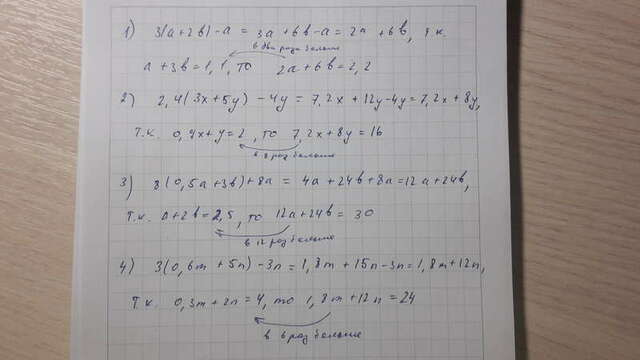 1) 3(a+2b)-a = 3a+6b-a = 2a+6b, т.к.
в два раза больше
a+3b=1,1, то 2a+6b=2,2
2) 2,4(3x+5y)-4y=7,2x+12y-4y=7,2x+8y,
т.к. 0,4x+y=2, то 7,2x+8y=16
в 8 раз больше
3) 8(0,5a+3b)+8a = 4a+24b+8a=12a+24b,
т.к. a+2b=2,5, то 12a+24b = 30
в 12 раз больше
4) 3(0,6m+5n)-3n=1,8m+15n-3n=1,8m+12n,
т.к. 0,3m+2n=4, то 1,8m+12n=24
в 6 раз больше